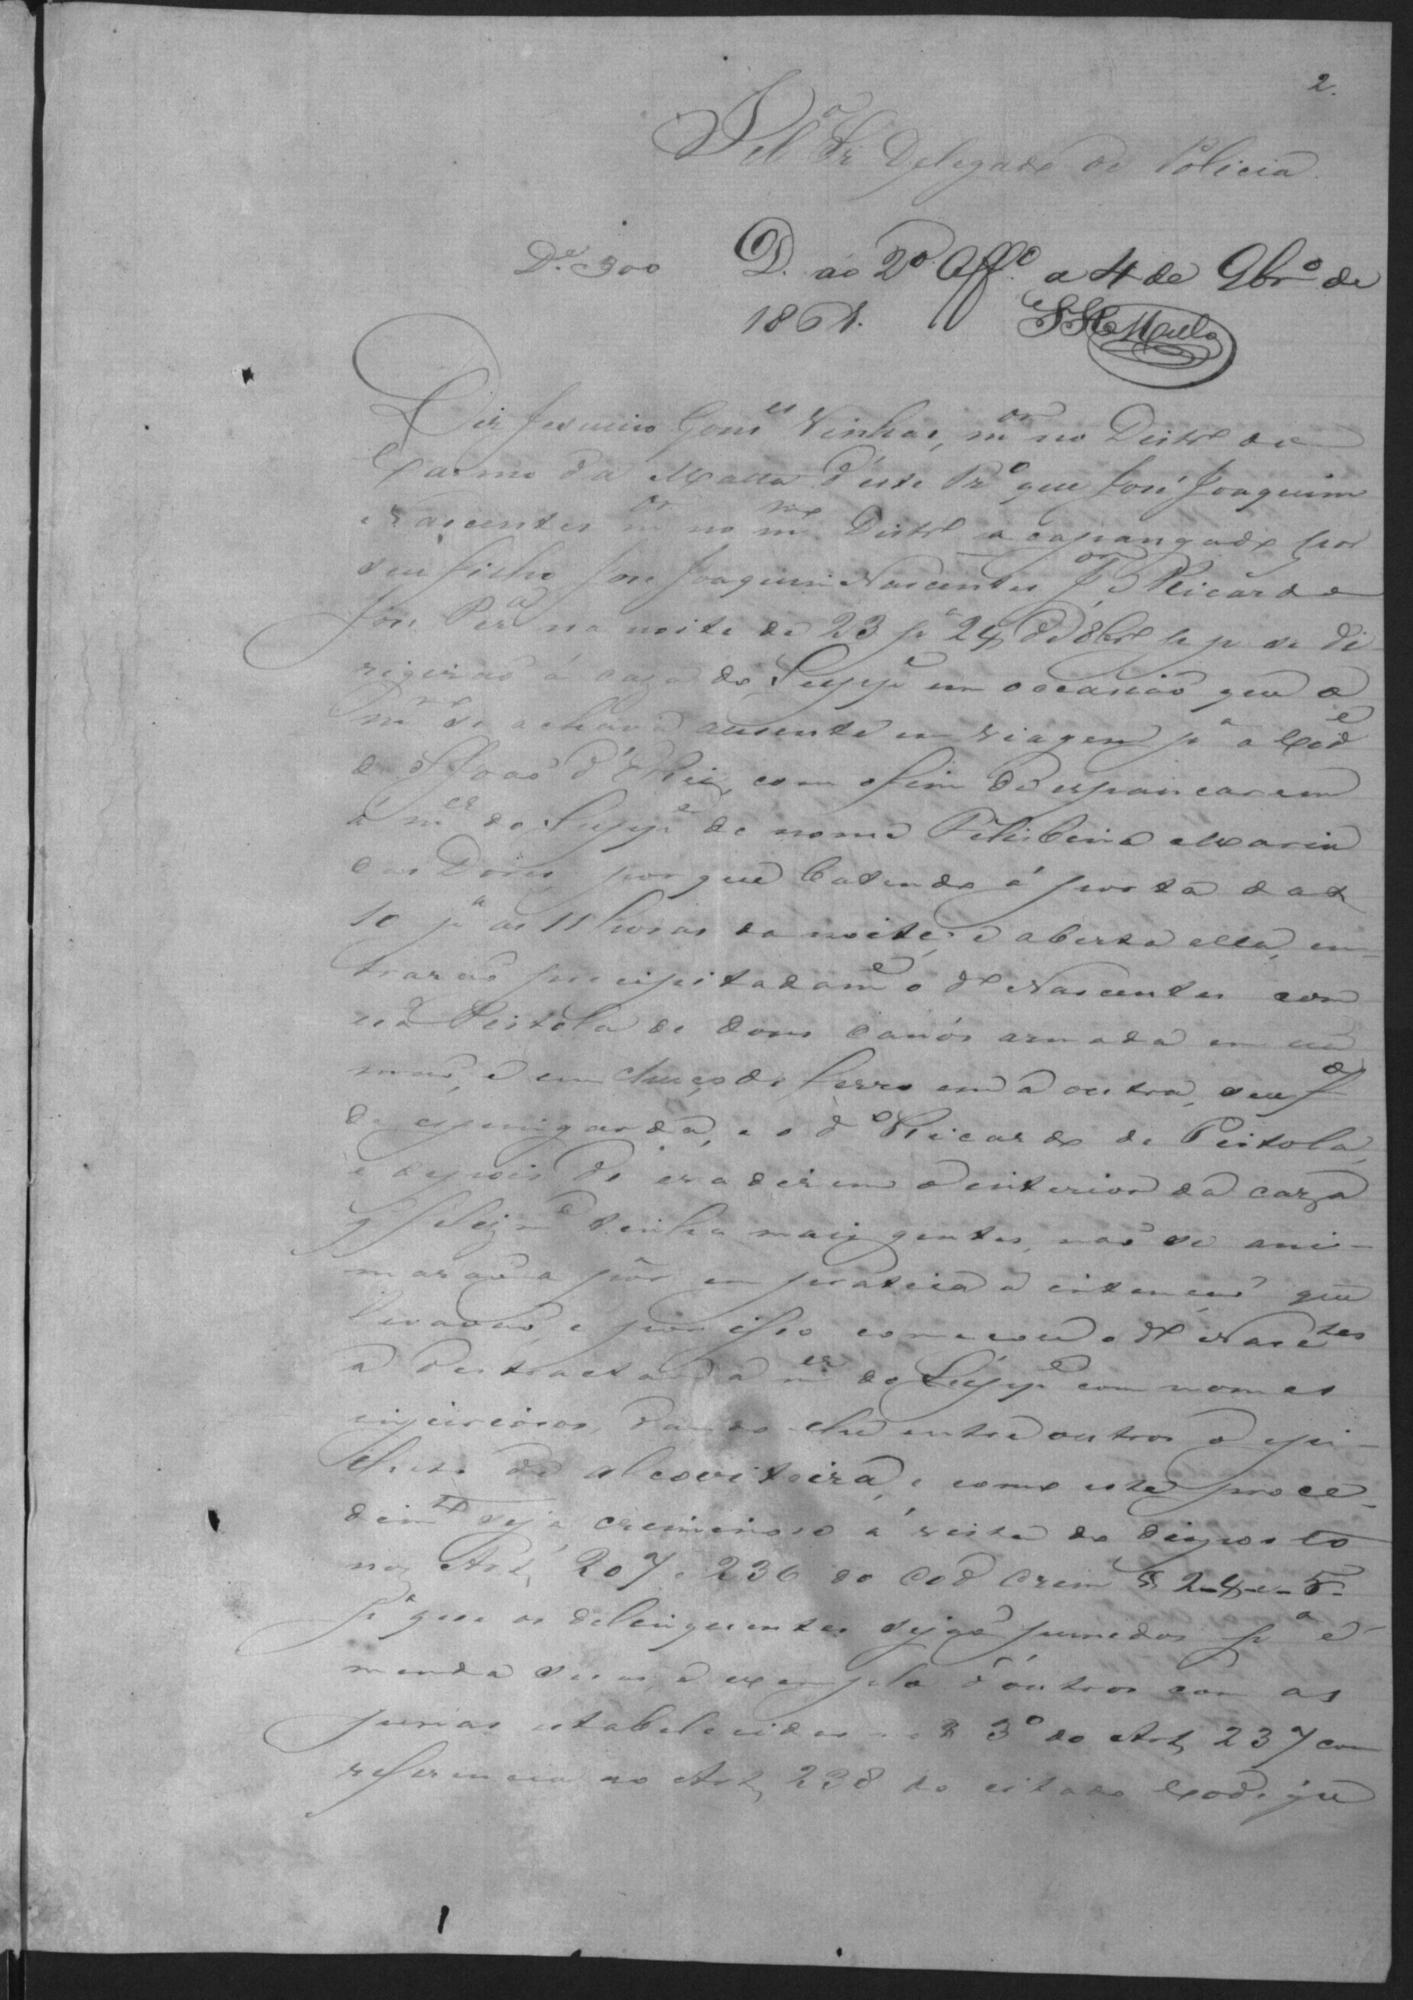 2.
Illmo Sr Delegado de Policia
Da. 300 D. ao 2o Offo a 4 de 9bro de
1861. Mello
Diz Gomes Vinhas, mor no Distro do
Carmo da Matta d'este que José Joaquim
Nascentes mor no mmo Distro acapangado por
seu filho José Joaquim Nascentes Jor e Ricardo
José Pera na noite de 23 pa 24 de 8bro p p se di
rigirão á caza do Suppe em occasião que o
mmo se achava ausente em viagem pa a Cide
de S João d'El Rei, com o fim de espancarem
a mer do Suppe de nome Felisbina Maria
das Dores, por que batendo á porta das
10 pa as 11 horas da noite, e aberta ella, en-
trarão precipitadame o do Nascentes com
uã Pistola de dous canos armada em uã
mão, e um chuço de ferro em a outra, seu fo
de espingarda, e o do Ricardo de Pistola,
e depois de invadirem o interior da caza
q' felizme tinha mais gentes, não se ani-
marão a pôr em pratica a intenção que
levavão, e por isso começou o do Nasctes
a destractar a mer do Suppe com nomes
injuriosos, dando-lhe entre outros o epi-
theto de alcoviteira, e como este proce-
dimto seja creminoso á vista do disposto
nos Arts 207 e 236 do Cod Crim § 2-4-e-5-
pa que os delinquentes sejão punidos pa e-
menda sua, e exemplo d'outros com as
penas estabelecidas no § 3o do Art, 237 com
referencia ao Art, 238 do citado Cod. que